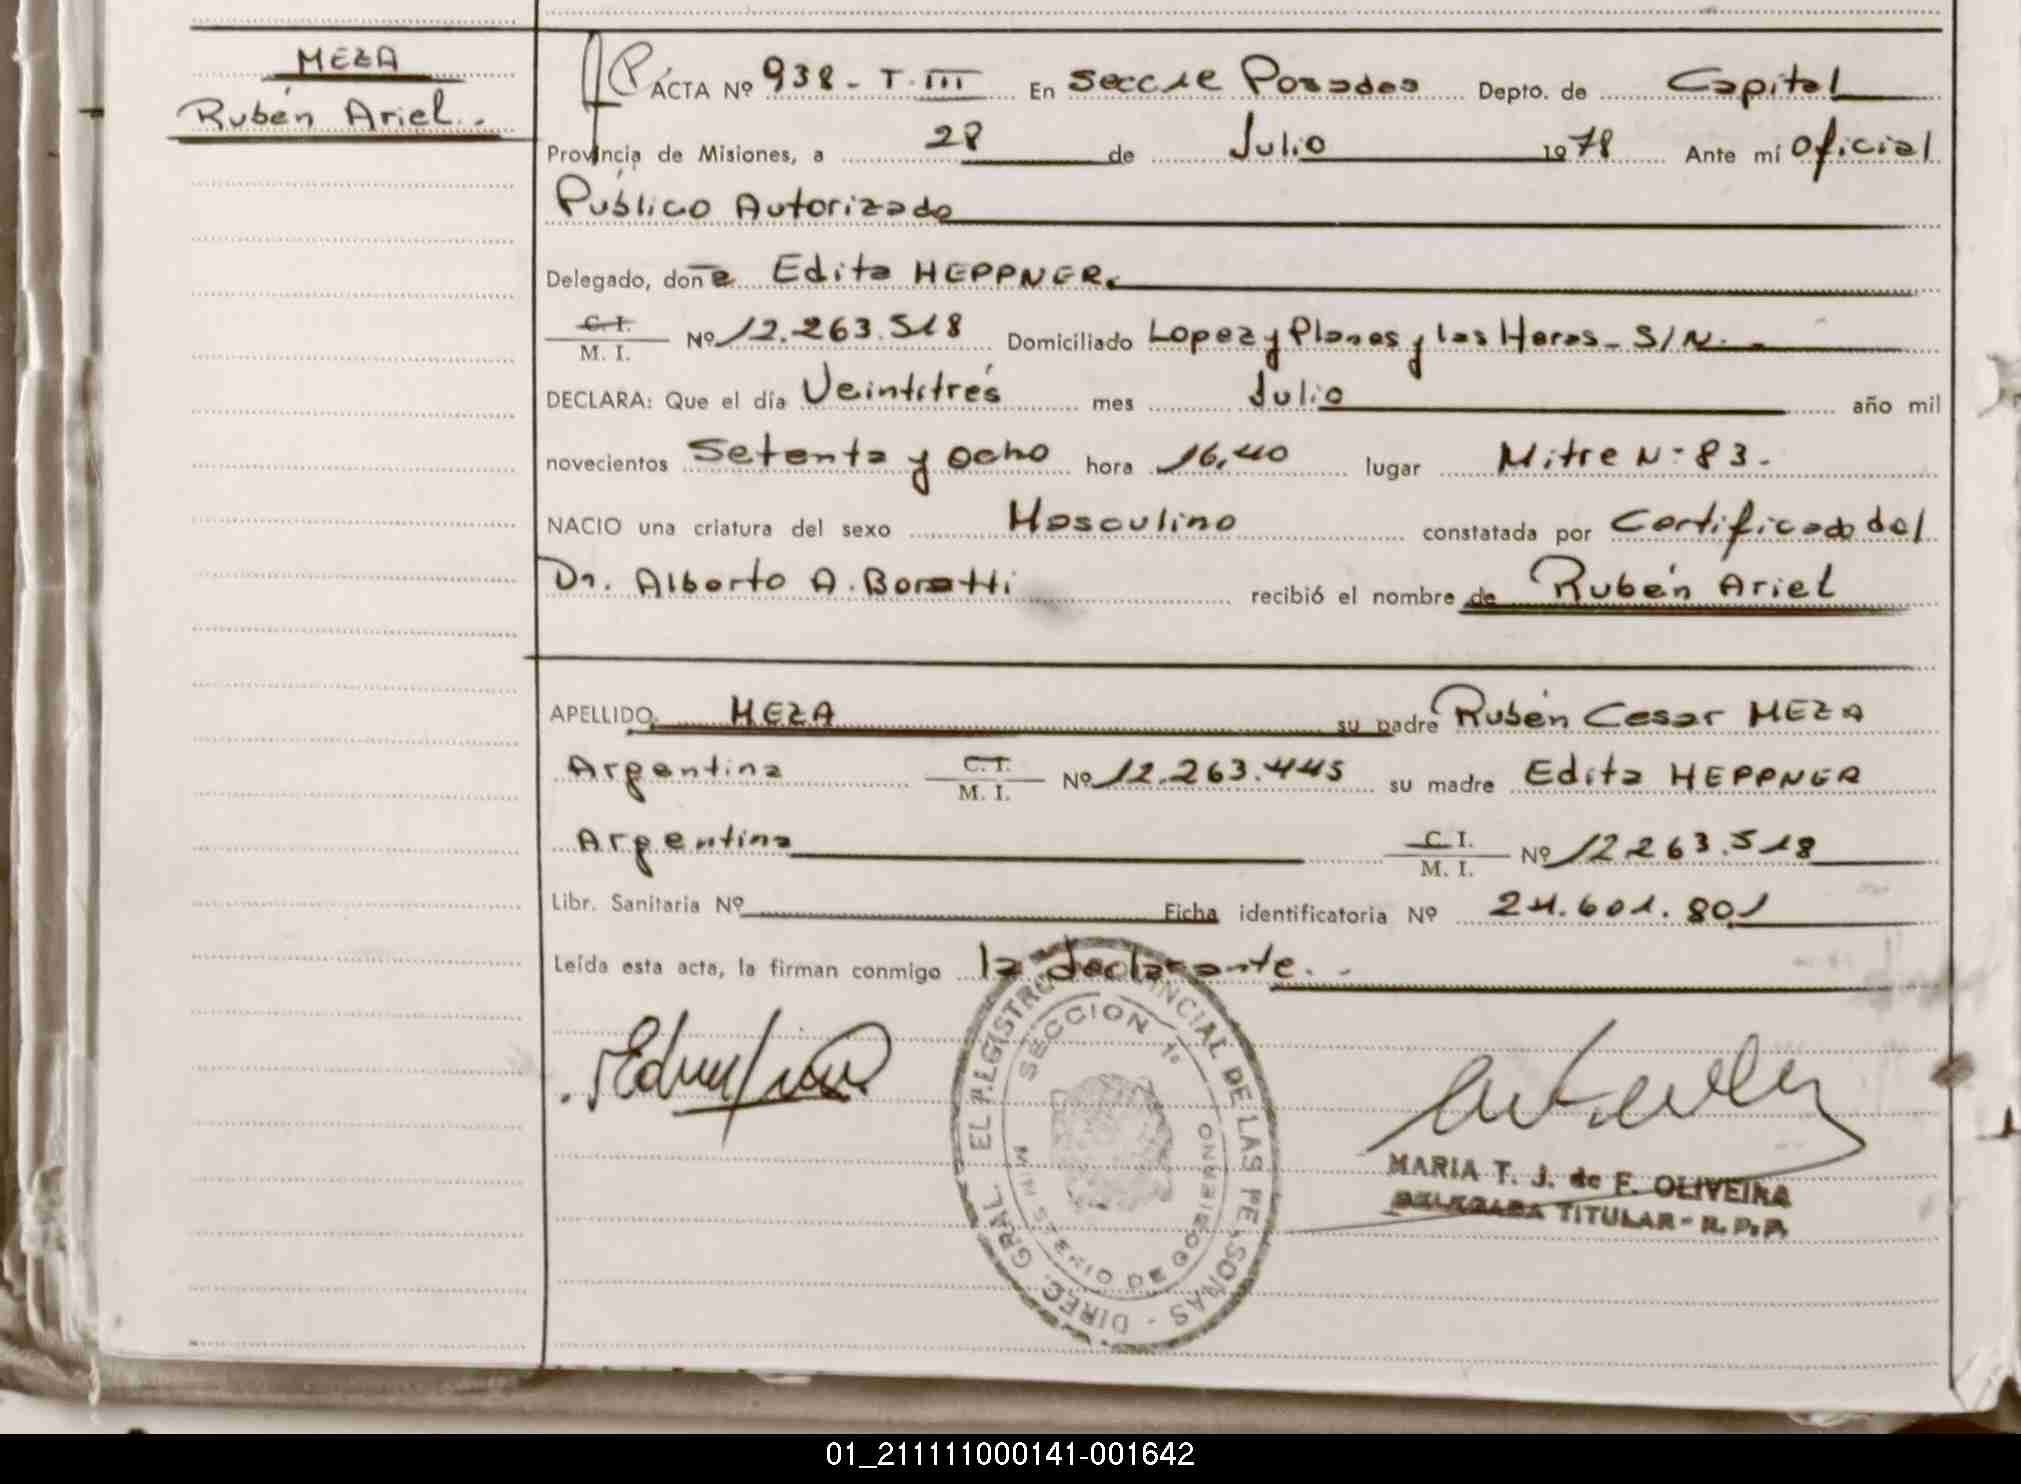 MEZA
Rubén Ariel.-
ACTA Nº 938 - T. III En Secc 1e Posadas Depto. de Capital
Provincia de Misiones, a 28 de Julio 1978 Ante mí Oficial
Público Autorizado
Delegado, doña Edita HEPPNER.
C. I. / M. I. Nº 12.263.518 Domiciliado Lopez y Planes y las Heras - S/N. -
DECLARA: Que el día Veintitrés mes Julio año mil
novecientos Setenta y ocho hora 16,40 lugar Mitre Nº 83.
NACIO una criatura del sexo Masculino constatada por Certificado del
Dr. Alberto A. Boratti recibió el nombre de Rubén Ariel
APELLIDO MEZA su padre Rubén Cesar MEZA
Argentina C. I. / M. I. Nº 12.263.445 su madre Edita HEPPNER
Argentina C. I. / M. I. Nº 12 263.518
Libr. Sanitaria Nº Ficha identificatoria Nº 24.601.801
Leída esta acta, la firman conmigo la declarante. -
DIREC. GRAL. EL REGISTRO PROVINCIAL DE LAS PERSONAS -
SECCION 1ª
MINISTERIO DE GOBIERNO
MARIA T. J. de F. OLIVEIRA
DELEGADA TITULAR - R. P. P.
01_211111000141-001642